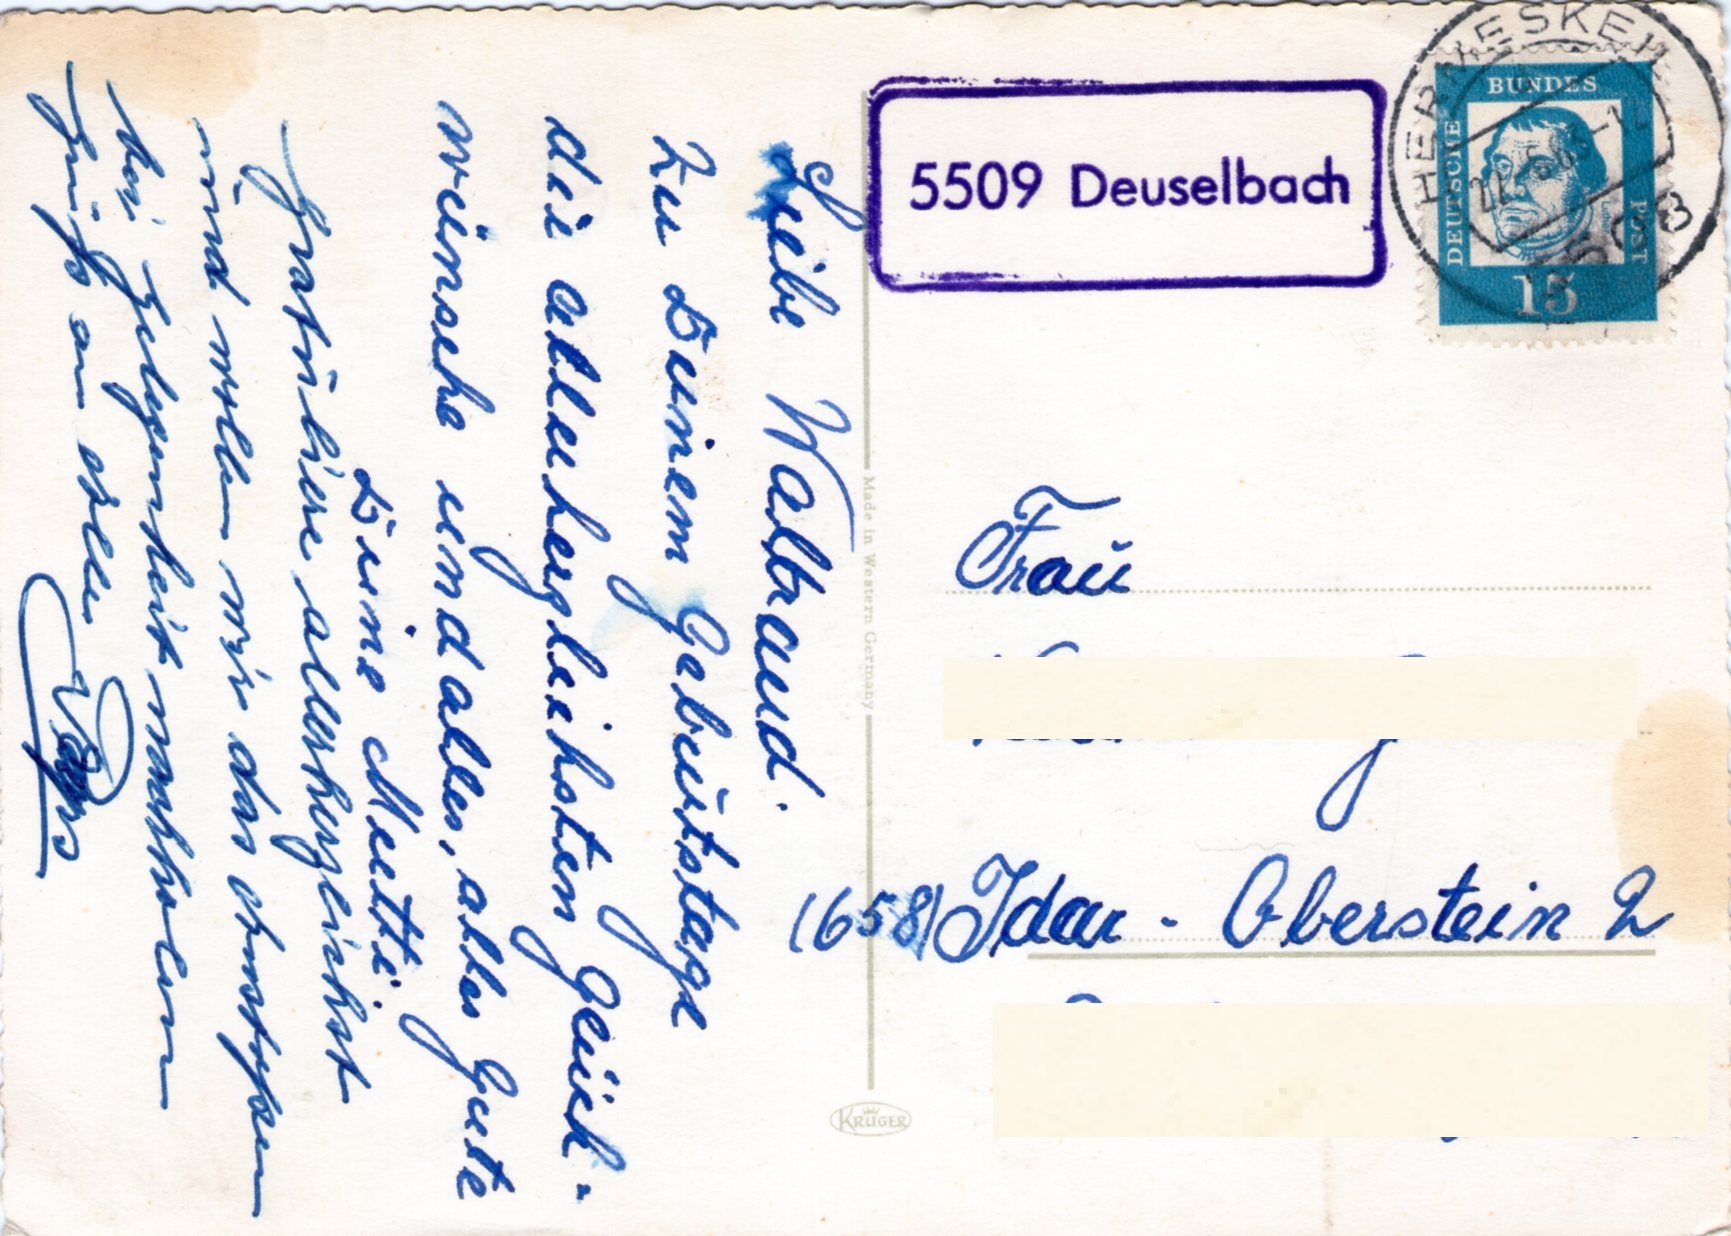 5509 Deuselbach
HERMESKEIL
DEUTSCHE BUNDES POST
15
Liebe Waltraud.
Zu Deinem Gebürtstage
die allerherzleichsten Glück-
wünsche und alles, alles Gute
Deine Mutti
Gratuliere allerherzlichst
und wollen wir das
bei Gelegenheit nachholen
Gruß an alle
Made in Western Germany
KRÜGER
Fraü
(658) Idar-Oberstein 2